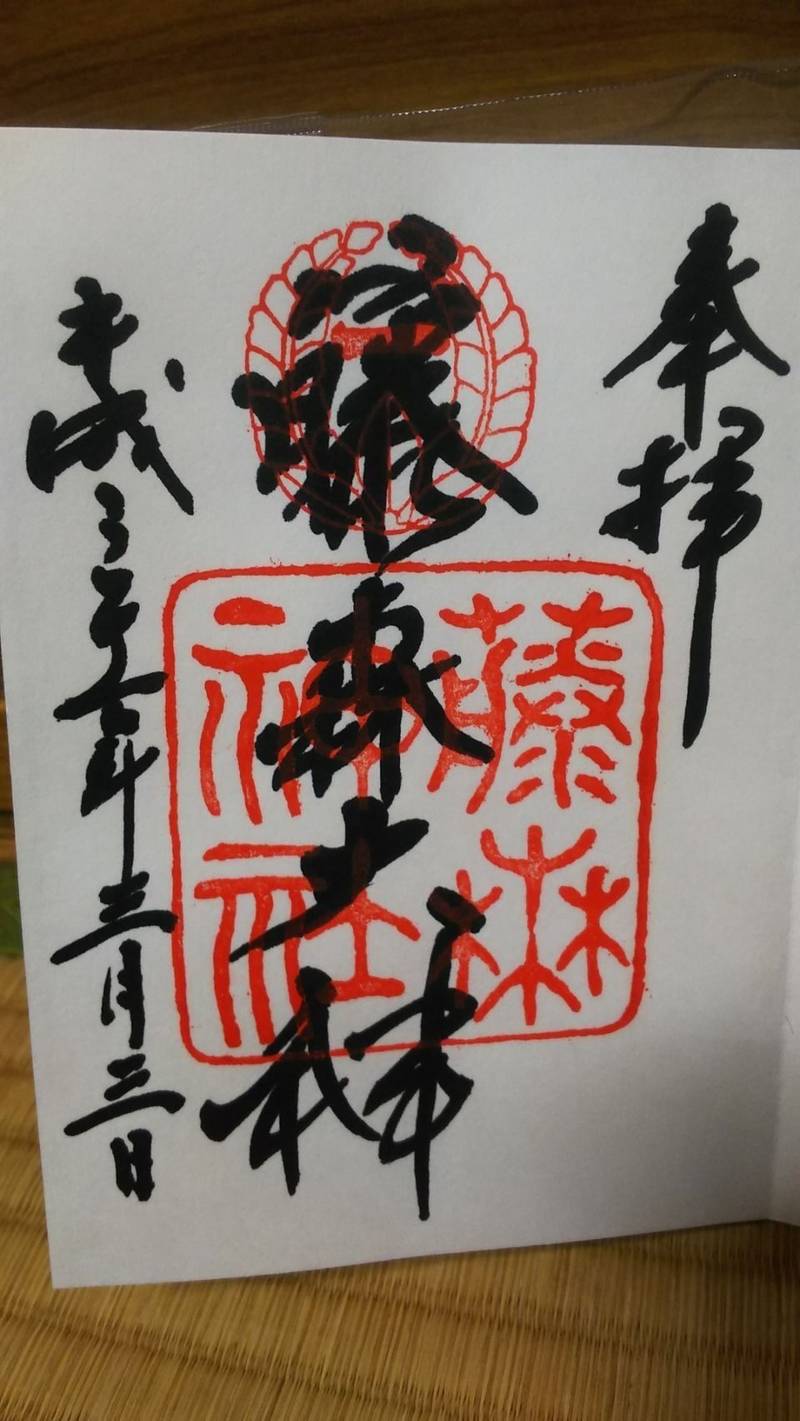 奉拝
藤森大神
平成二十六年三月三日
藤森
神社